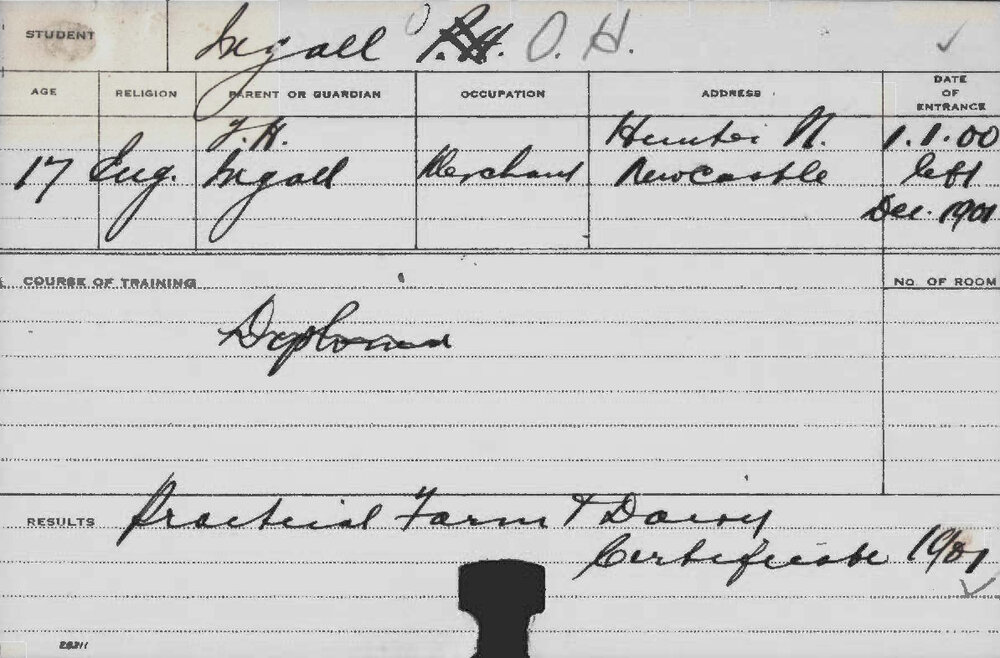 STUDENT Ingall P.H. O. H.
AGE RELIGION PARENT OR GUARDIAN OCCUPATION ADDRESS DATE OF ENTRANCE
17 Eng. T. H. Ingall Merchant Hunter St. Newcastle 1.1.00
left
Dec. 1901
COURSE OF TRAINING NO. OF ROOM
Diploma
RESULTS Practical Farm & Dairy
Certificate 1901